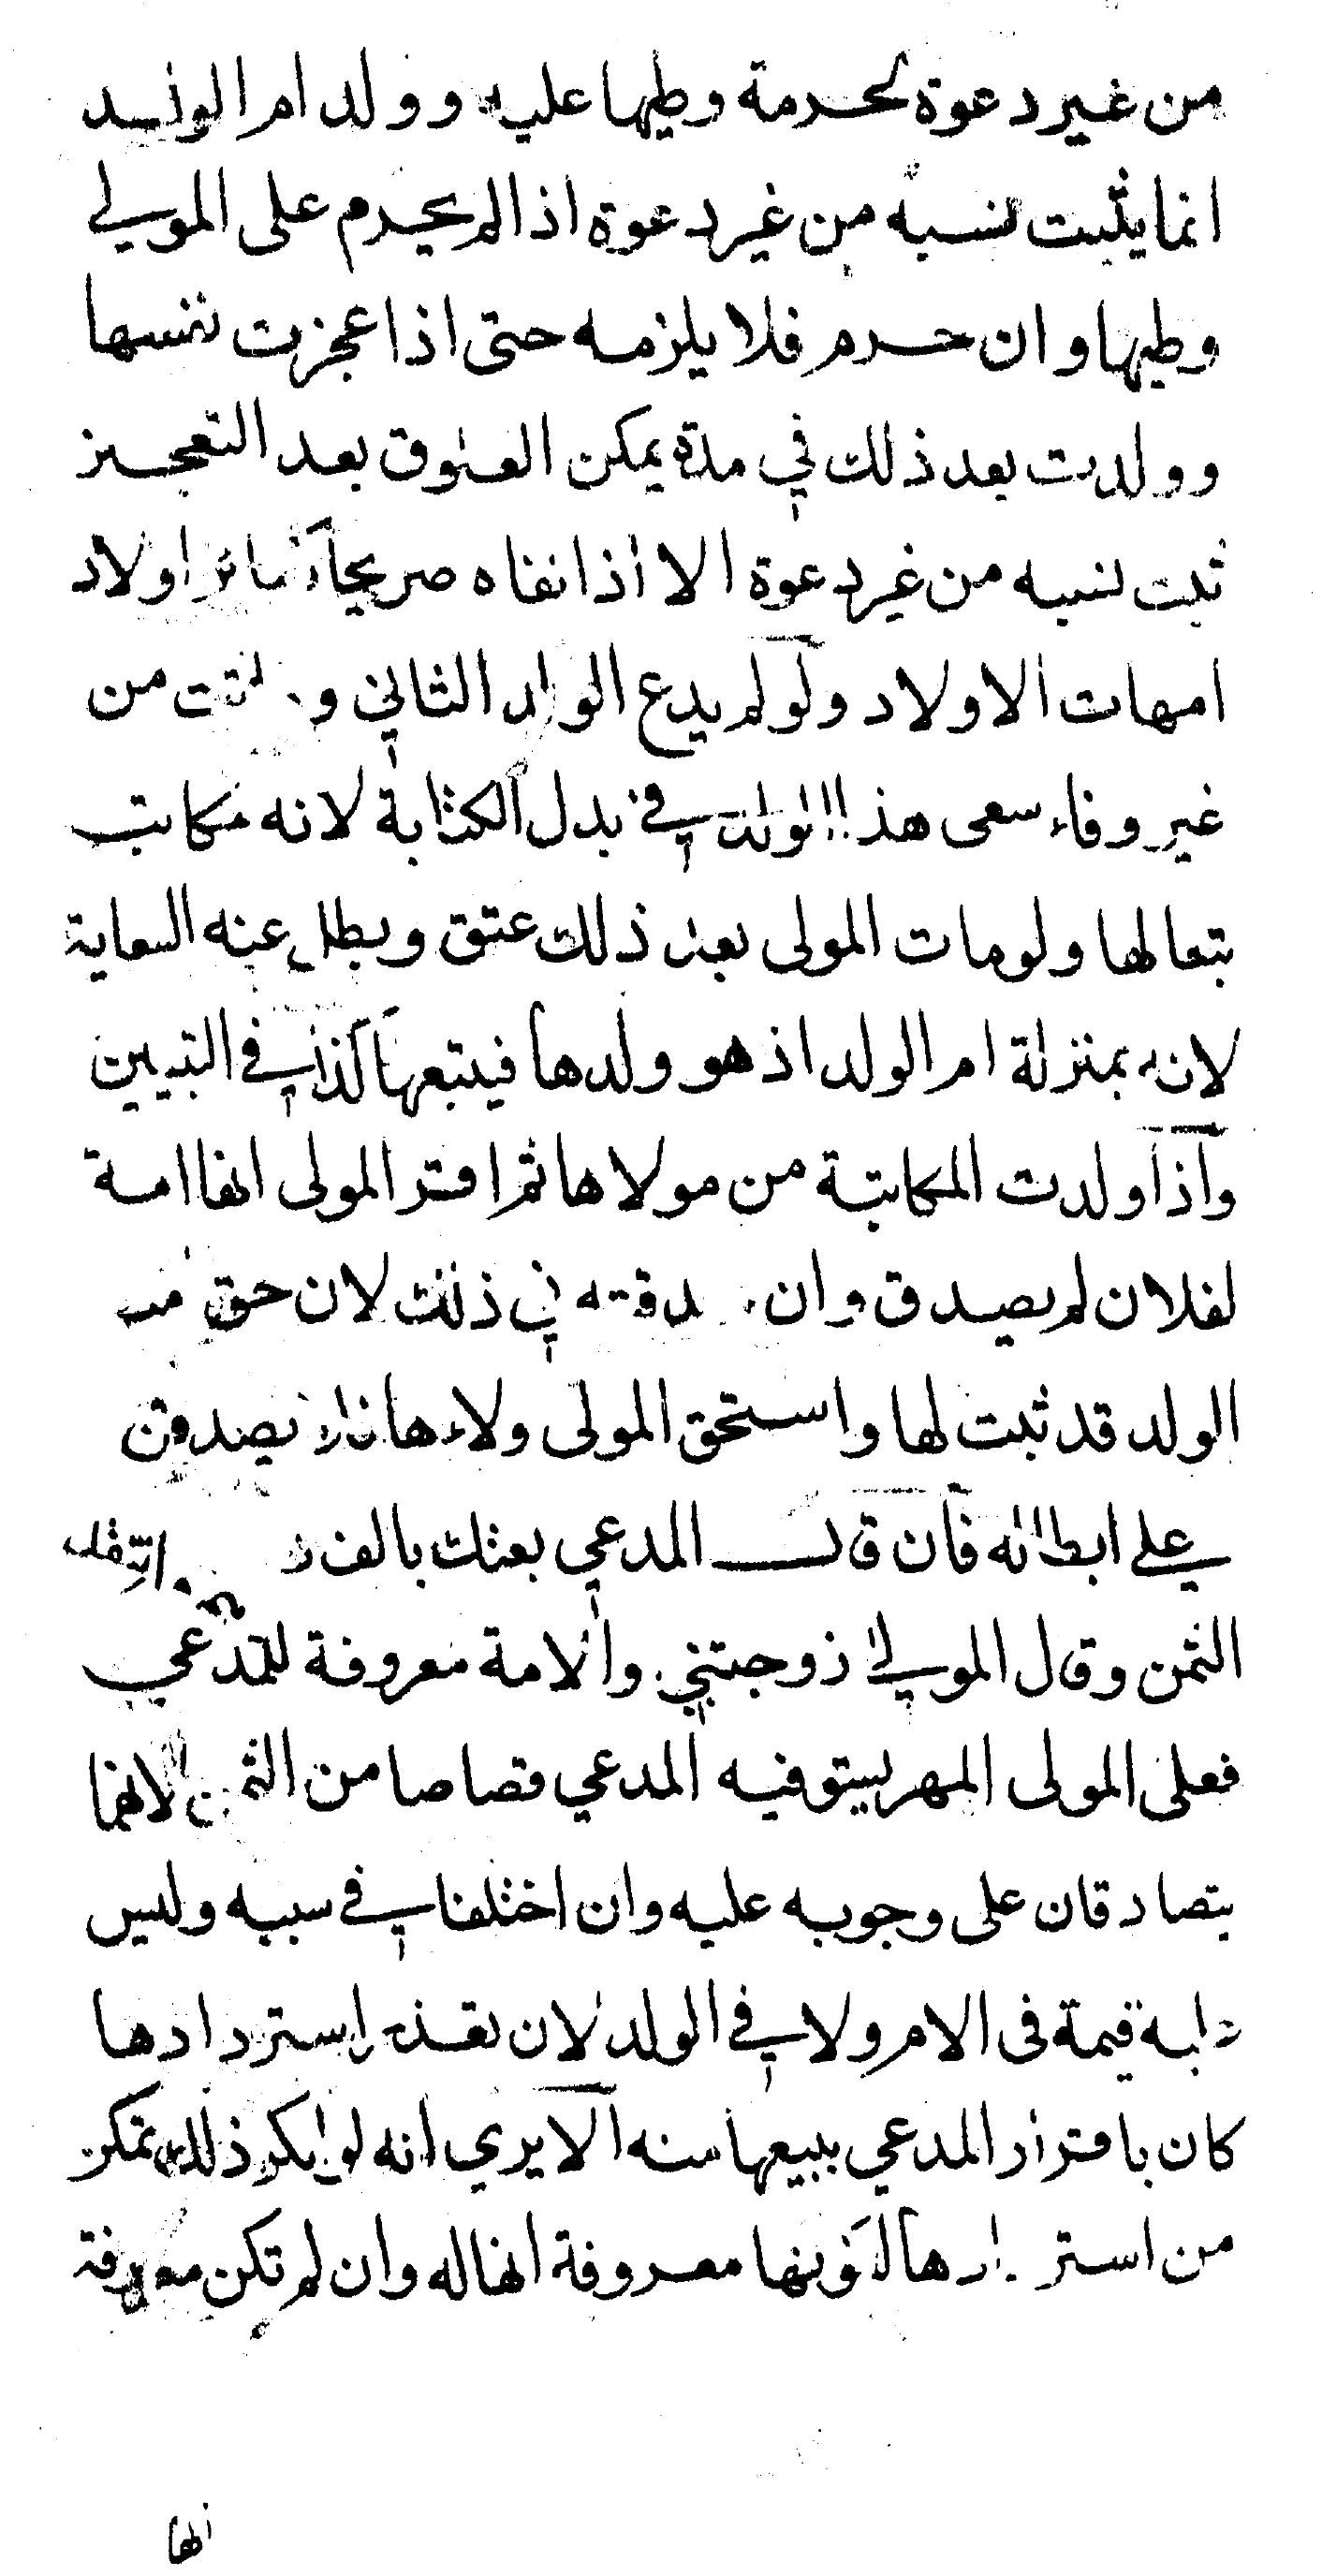 من غير دعوة لحرمة وطيها عليه وولد ام الولد
انما يثبت نسبه من غير دعوة اذا لم يحرم على المولي
وطيها وان حرم فلا يلزمه حتى اذا عجزت نفسها
وولدت بعد ذلك في مدة يمكن العلوق بعد التعجيز
ثبت نسبه من غير دعوة الا اذا نفاه صريحا كسائر اولاد
امهات الاولاد ولو لم يدع الولد الثاني و من
غير وفاء سعى هذا الولد في بدل الكتابة لانه مكاتب
تبعا لها ولو مات المولى بعد ذلك عتق وبطل عنه السعاية
لانه بمنزلة ام الولد اذ هو ولدها فيتبعها كذا في التبيين
واذا ولدت المكاتبة من مولاها ثم اقر المولى انها امة
لفلان لم يصدق وان صدقته في ذلك لان حق
الولد قد ثبت لها واستحق المولى ولاءها فلا يصدقان
علي ابطاله فان قال المدعي بعتك بالف
الثمن وقال المولي زوجتني والامة معروفة للمدعي
فعلى المولى المهر يستوفيه المدعي قصاصا من الثمن لانهما
يتصادقان على وجوبه عليه وان اختلفا في سببه وليس
عليه قيمة فى الام ولا في الولد لان تعذر استردادها
كان باقرار المدعي ببيعها منه الا يري انه لو انكر ذلك تمكن
من استردادها لكونها معروفة انها له وان لم تكن معروفة
انها